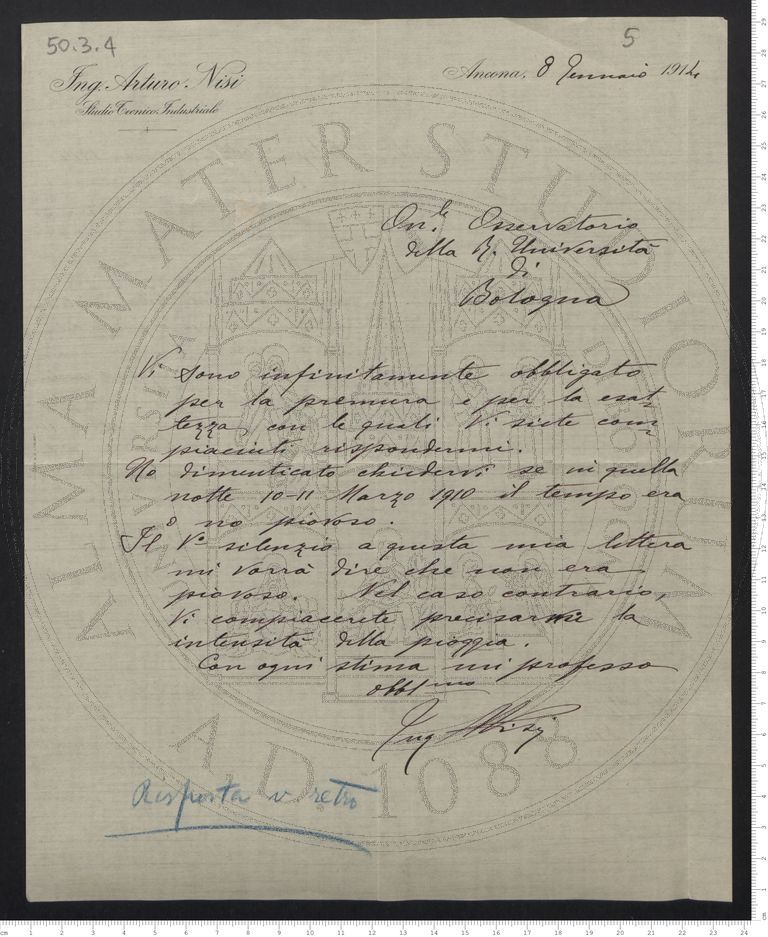 50.3.4
5
Ing. Arturo Nisi
Studio Tecnico Industriale
Ancona, 8 Gennaio 1914
On.le Osservatorio
della R. Università
di
Bologna
Vi sono infinitamente obbligato
per la premura e per la esat-
tezza con le quali Vi siete com-
piaciuti rispondermi.
Ho dimenticato chiedervi se in quella
notte 10-11 Marzo 1910 il tempo era
o no piovoso.
Il Vo silenzio a questa mia lettera
mi vorrà dire che non era
piovoso. Nel caso contrario,
Vi compiacerete precisarmi la
intensità della pioggia.
Con ogni stima mi professo
obblmo
Ing ANisi
Risposta v. retro
ALMA MATER STUDIORUM
A.D. 1088